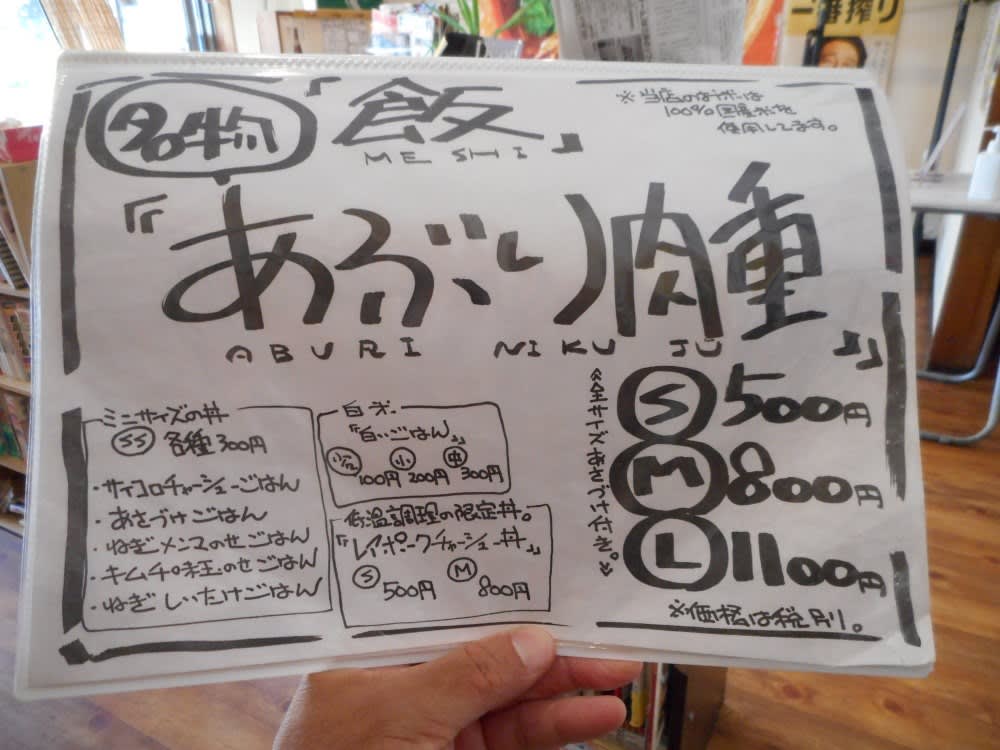 一番搾り
名物
『飯』
MESHI
※当店のお米は
100%国産米を
使用してます。
『あぶり肉重』
ABURI NIKU JU
ミニサイズの丼
SS 各種300円
・サイコロチャーシューごはん
・あさづけごはん
・ねぎメンマのせごはん
・キムチ味玉のせごはん
・ねぎしいたけごはん
白米。
『白いごはん』
小 中
100円 200円 300円
低温調理の限定丼。
『レイポークチャーシュー丼』
S 500円 M 800円
《全サイズあさづけ付き。》
S 500円
M 800円
L 1100円
※価格は税別。